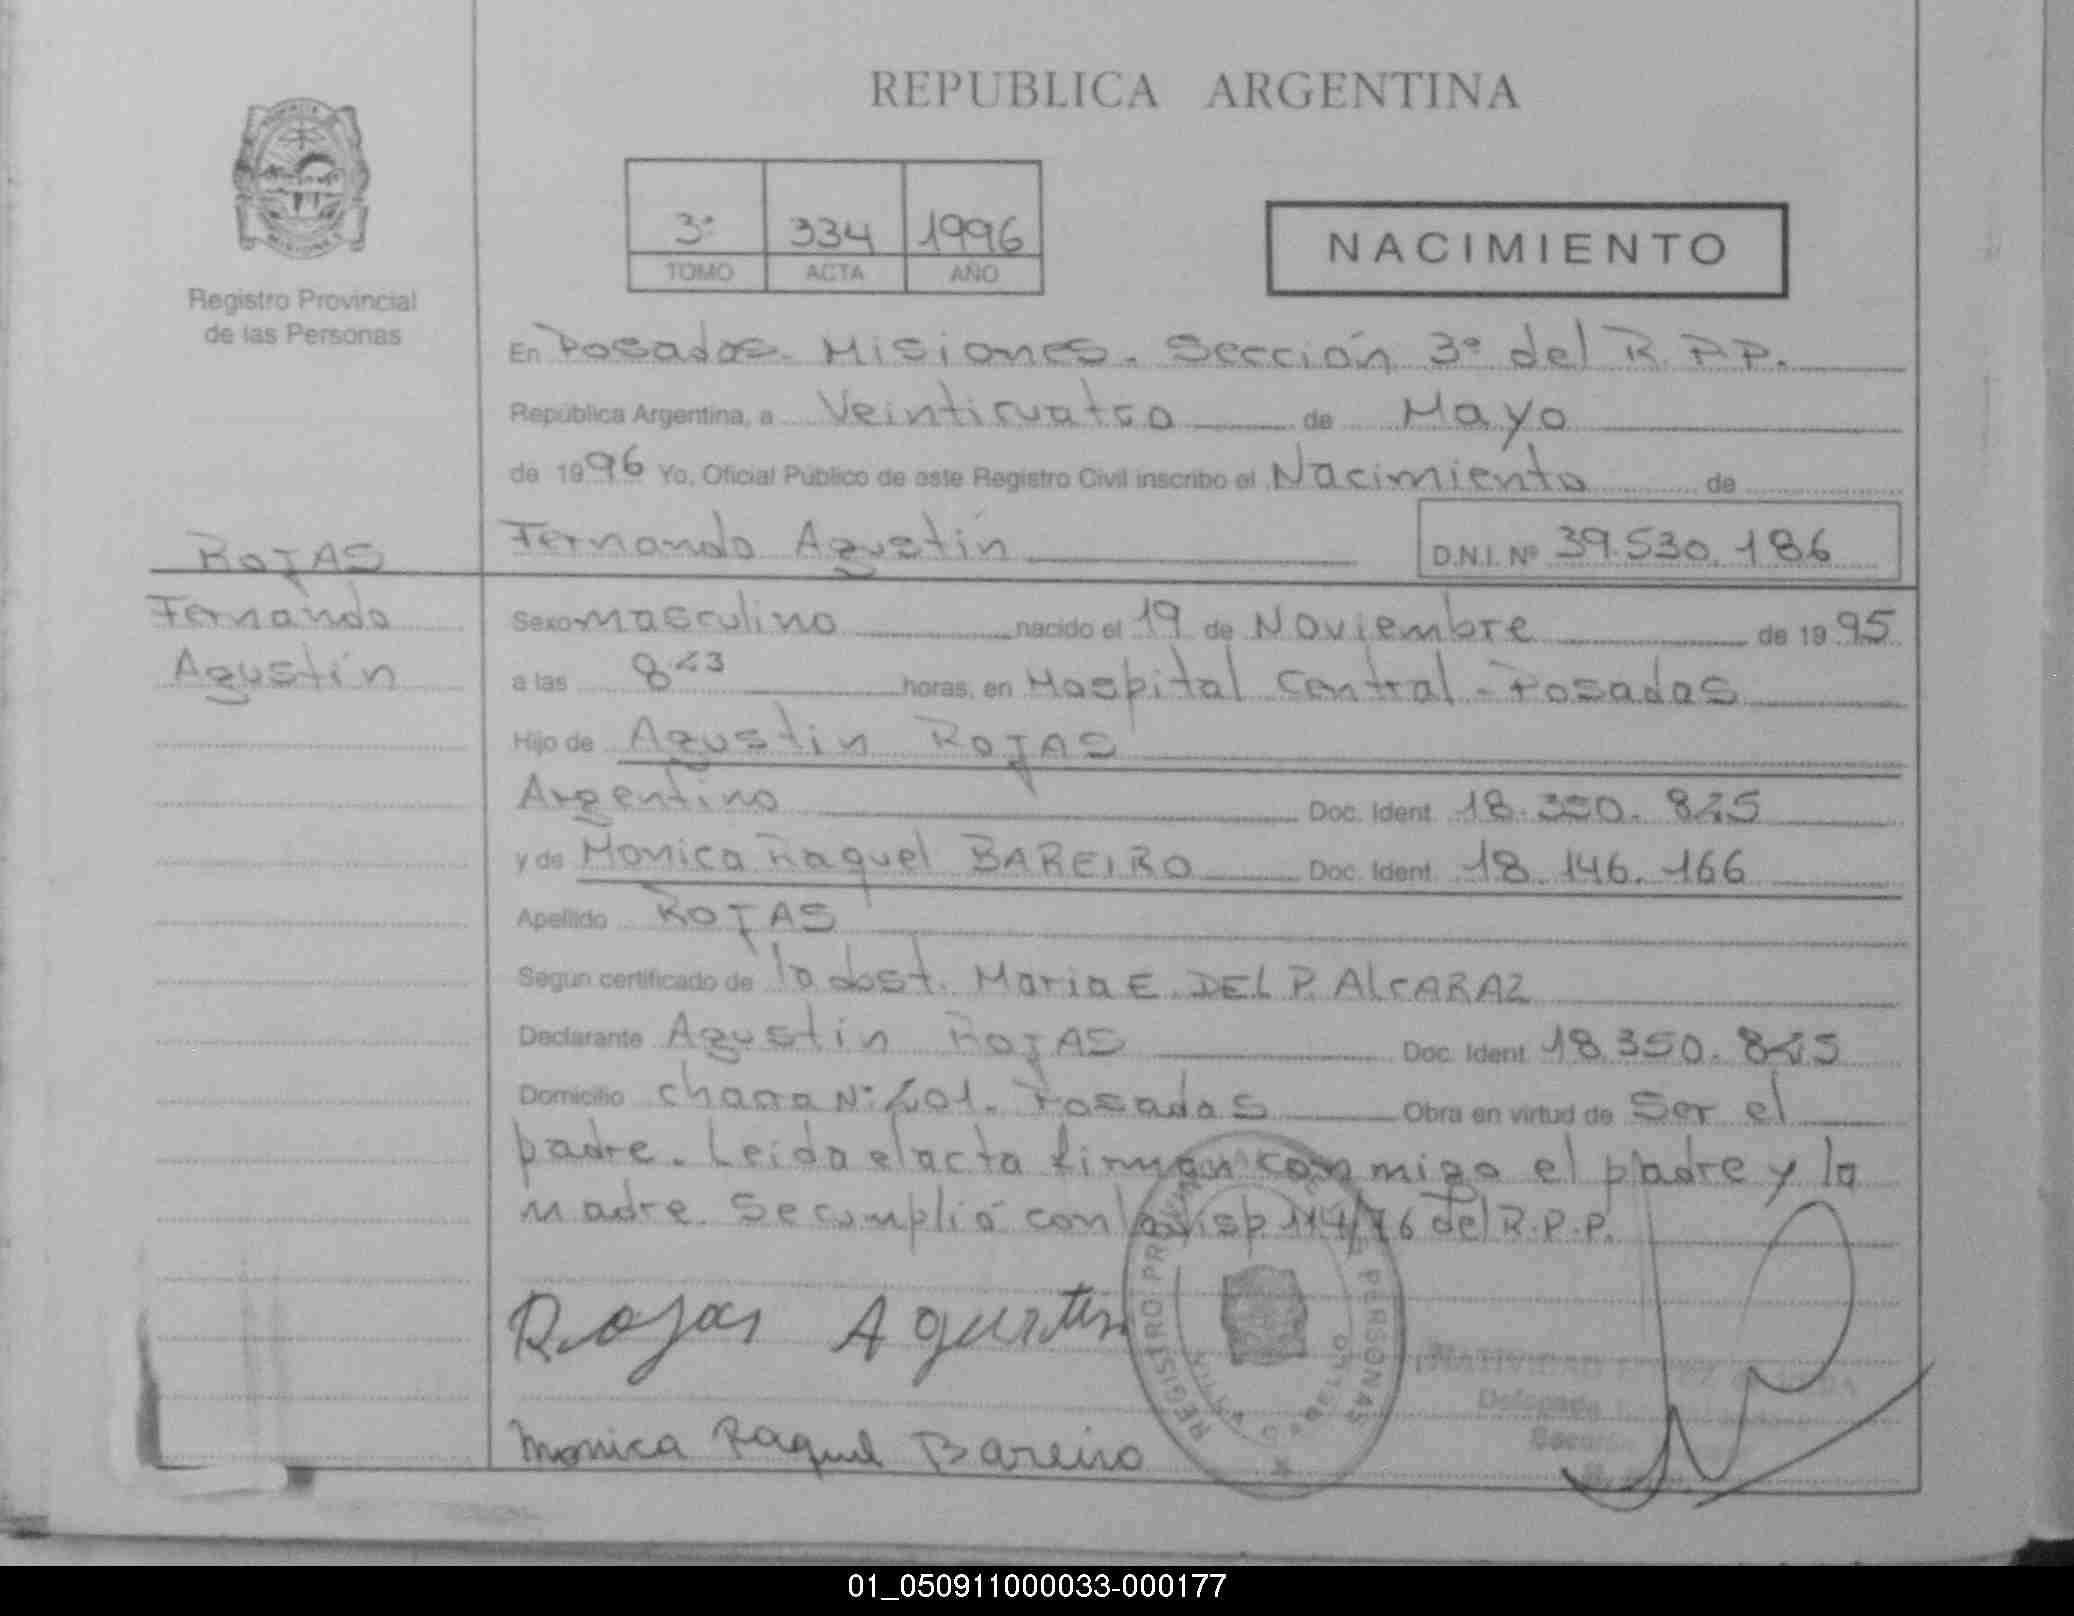 REPUBLICA ARGENTINA
3º 334 1996
TOMO ACTA AÑO
NACIMIENTO
Registro Provincial
de las Personas
En Posadas. Misiones. Sección 3º del R.P.P.
República Argentina, a Veinticuatro de Mayo
de 1996 Yo, Oficial Público de este Registro Civil inscribo el Nacimiento de
ROJAS
Fernando Agustín
D.N.I. Nº 39.530.186
Fernando
Agustín
Sexo masculino nacido el 19 de Noviembre de 1995
a las 8 horas, en Hospital Central - Posadas
Hijo de Agustin ROJAS
Argentino Doc. Ident. 18.350.825
y de Monica Raquel BAREIRO Doc. Ident. 18.146.166
Apellido ROJAS
Según certificado de la obst. Maria E. DEL P. ALCARAZ
Declarante Agustin ROJAS Doc. Ident. 18.350.825
Domicilio chacra Nº 201. Posadas Obra en virtud de Ser el
padre. Leida el acta firman conmigo el padre y la
madre. Se cumplió con la Disp. 114/76 del R.P.P.
Rojas Agustin
Monica Raquel Bareiro
REGISTRO PERSONAS
NATIVIDAD
Delegada
01_050911000033-000177